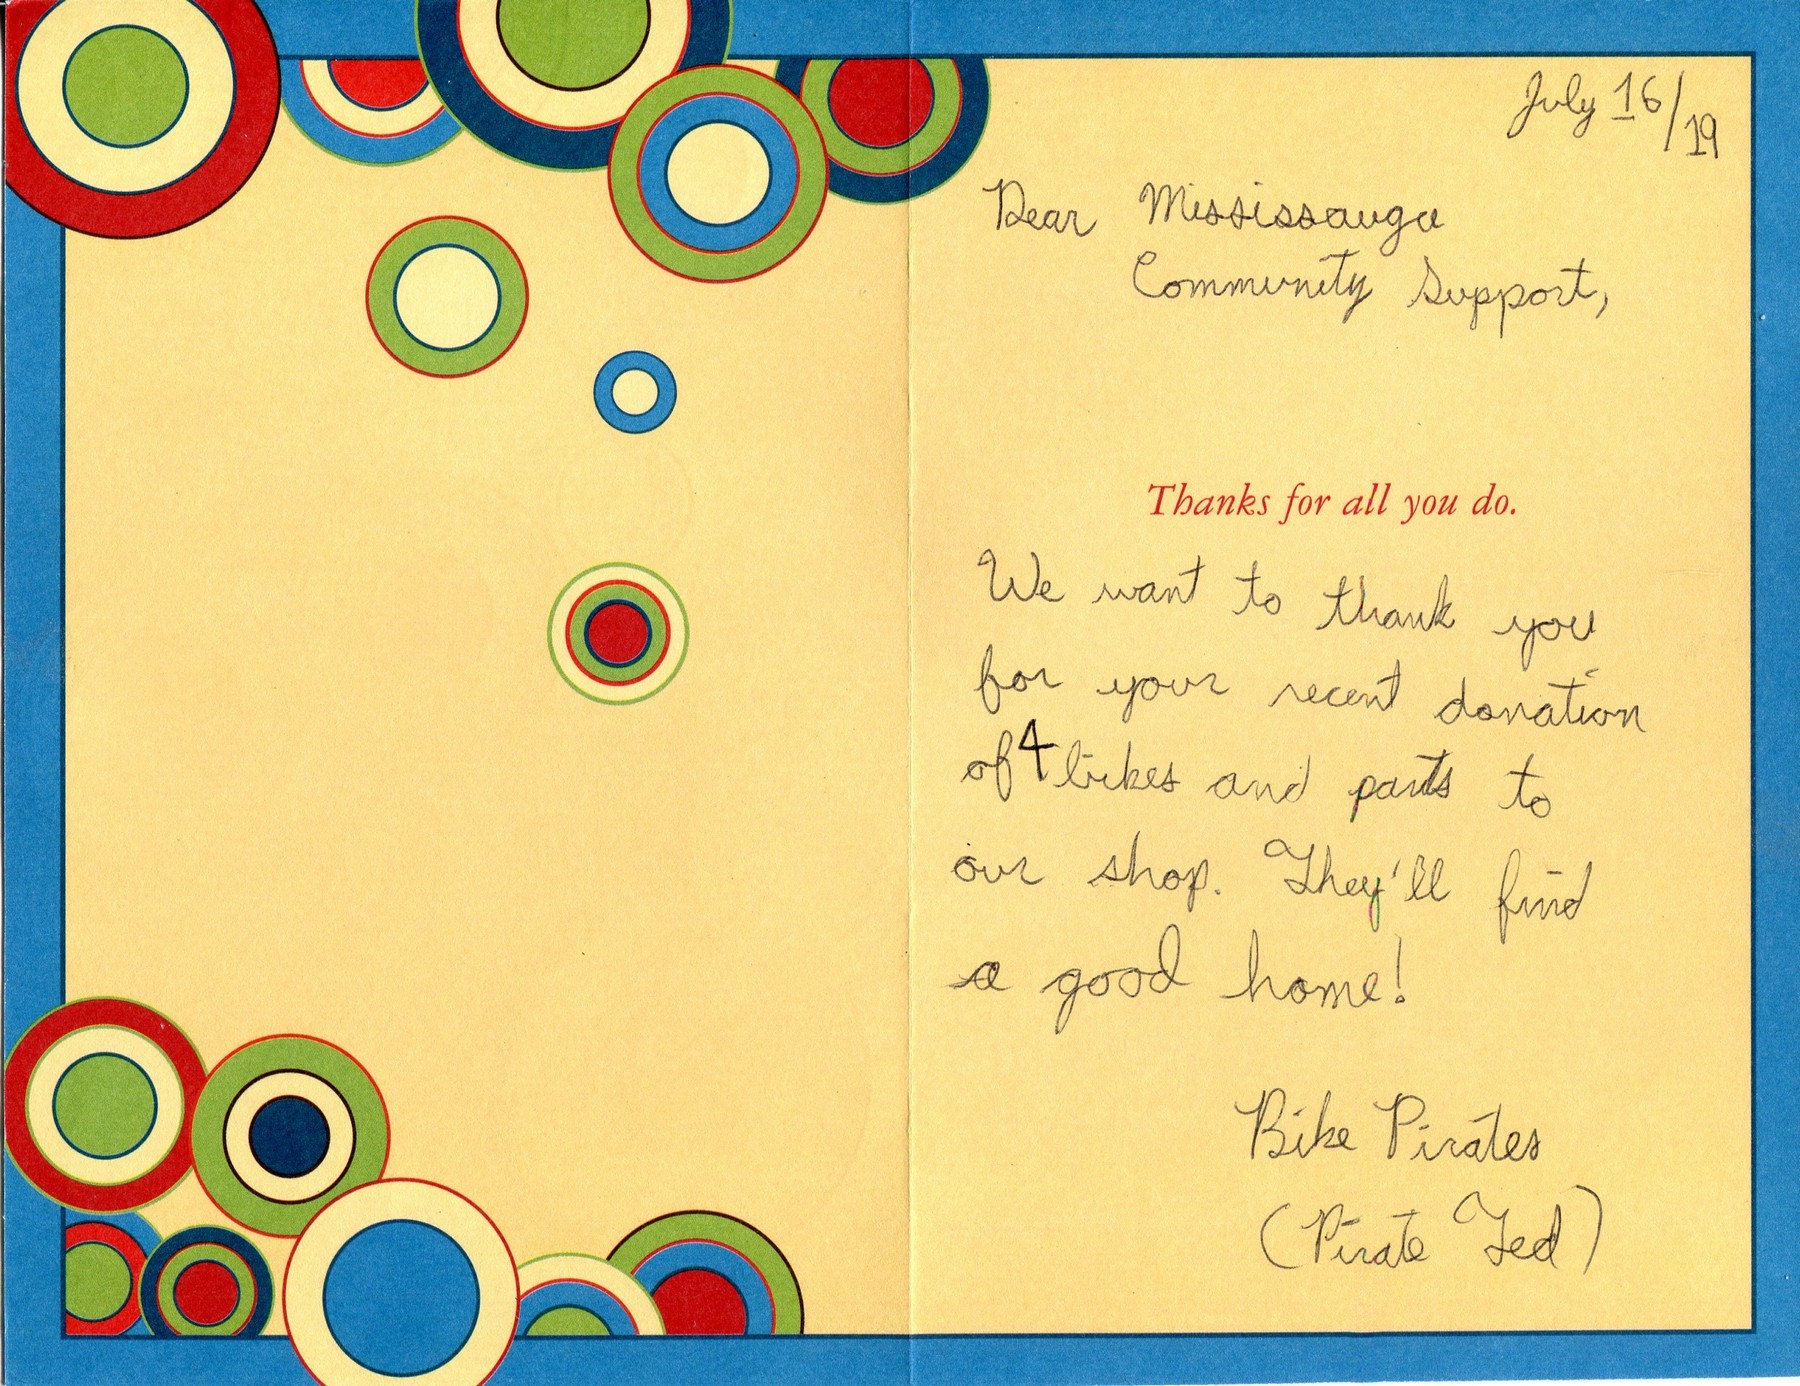 July 16/19
Dear Mississauga
Community Support,
Thanks for all you do.
We want to thank you
for your recent donation
of 4 bikes and parts to
our shop. They'll find
a good home!
Bike Pirates
(Pirate Ted)